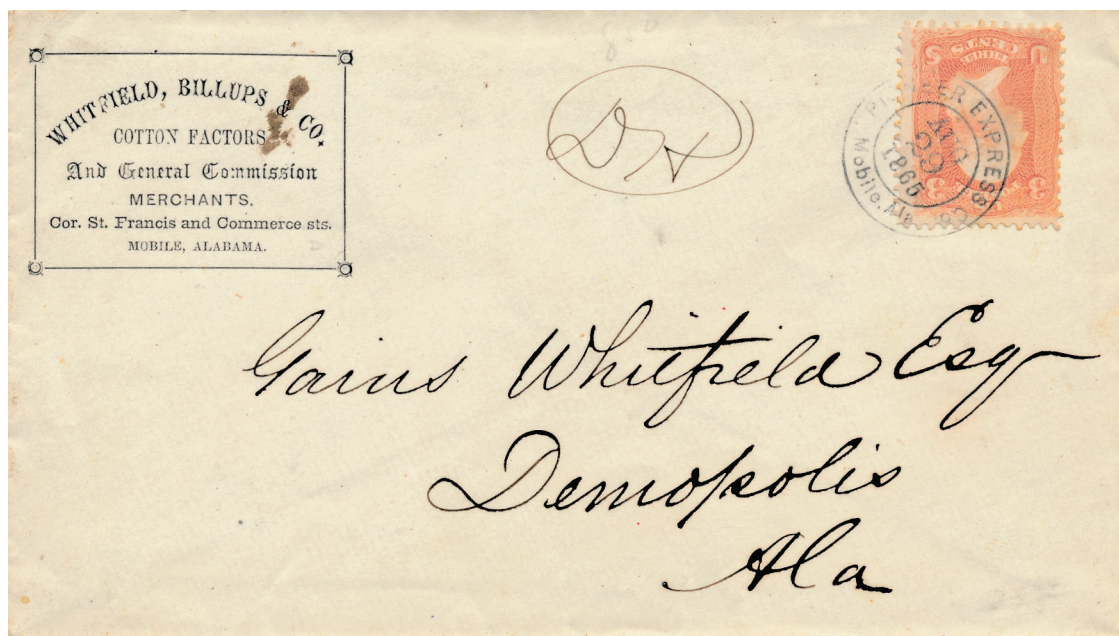 WHITFIELD, BILLUPS & CO.
COTTON FACTORS
And General Commission
MERCHANTS.
Cor. St. Francis and Commerce sts.
MOBILE, ALABAMA.
DH
PIONEER EXPRESS Co.
AUG
29
1865
Mobile, Ala
U S
THREE
CENTS
3 3
Gains Whitfield Esq
Demopolis
Ala